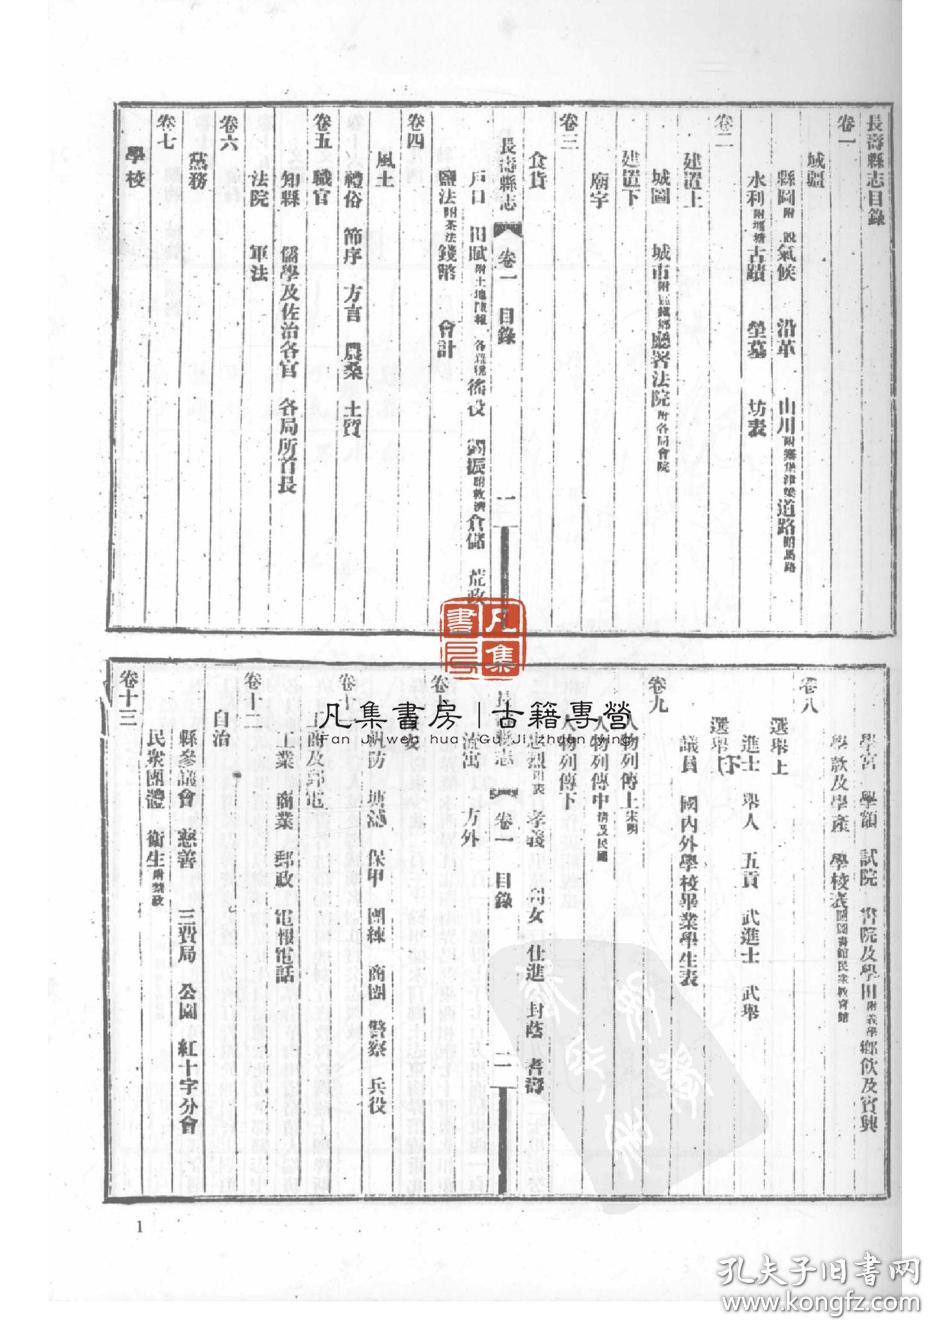 長壽縣志目錄
卷一
城疆
縣圖附說氣候 沿革 山川附鄉堡津梁道路附馬路
水利附堰塘古蹟 塋墓 坊表
卷二
建置上
城圖 城市附官鎮鄉廳署法院附各局會院
建置下
廟宇
卷三
食貨
長壽縣志 卷一 目錄 一
戶口 田賦附土地陳報 各項稅 徭役 蠲振附救濟倉儲 荒政
鹽法附茶法錢幣 會計
卷四
風土
禮俗 節序 方言 農桑 土質
卷五
職官
知縣 儒學及佐治各官 各局所首長
法院 軍法
卷六
黨務
卷七
學校
學宮 學額 試院 書院及學田附義學鄉飲及賓興
學款及學產 學校表附圖書館民衆教育館
卷八
選舉上
進士 舉人 五貢 武進士 武舉
選舉下
議員 國內外學校畢業學生表
卷九
人物列傳上宋明
人物列傳中清及民國
人物列傳下
忠烈附表 孝義 列女 仕進 封蔭 耆壽
長壽縣志 卷一 目錄 二
流寓 方外
卷十
兵防 塘汛 保甲 團練 商團 警察 兵役
卷十一
工商及郵電
工業 商業 郵政 電報電話
卷十二
自治
縣參議會 慈善 三費局 公園 紅十字分會
民衆團體 衛生附禁政
卷十三
凡集書房 | 古籍專營
Fan Ji Wen hua Gu Ji zhuan ying
凡集書
1
孔夫子旧書网
www.kongfz.com